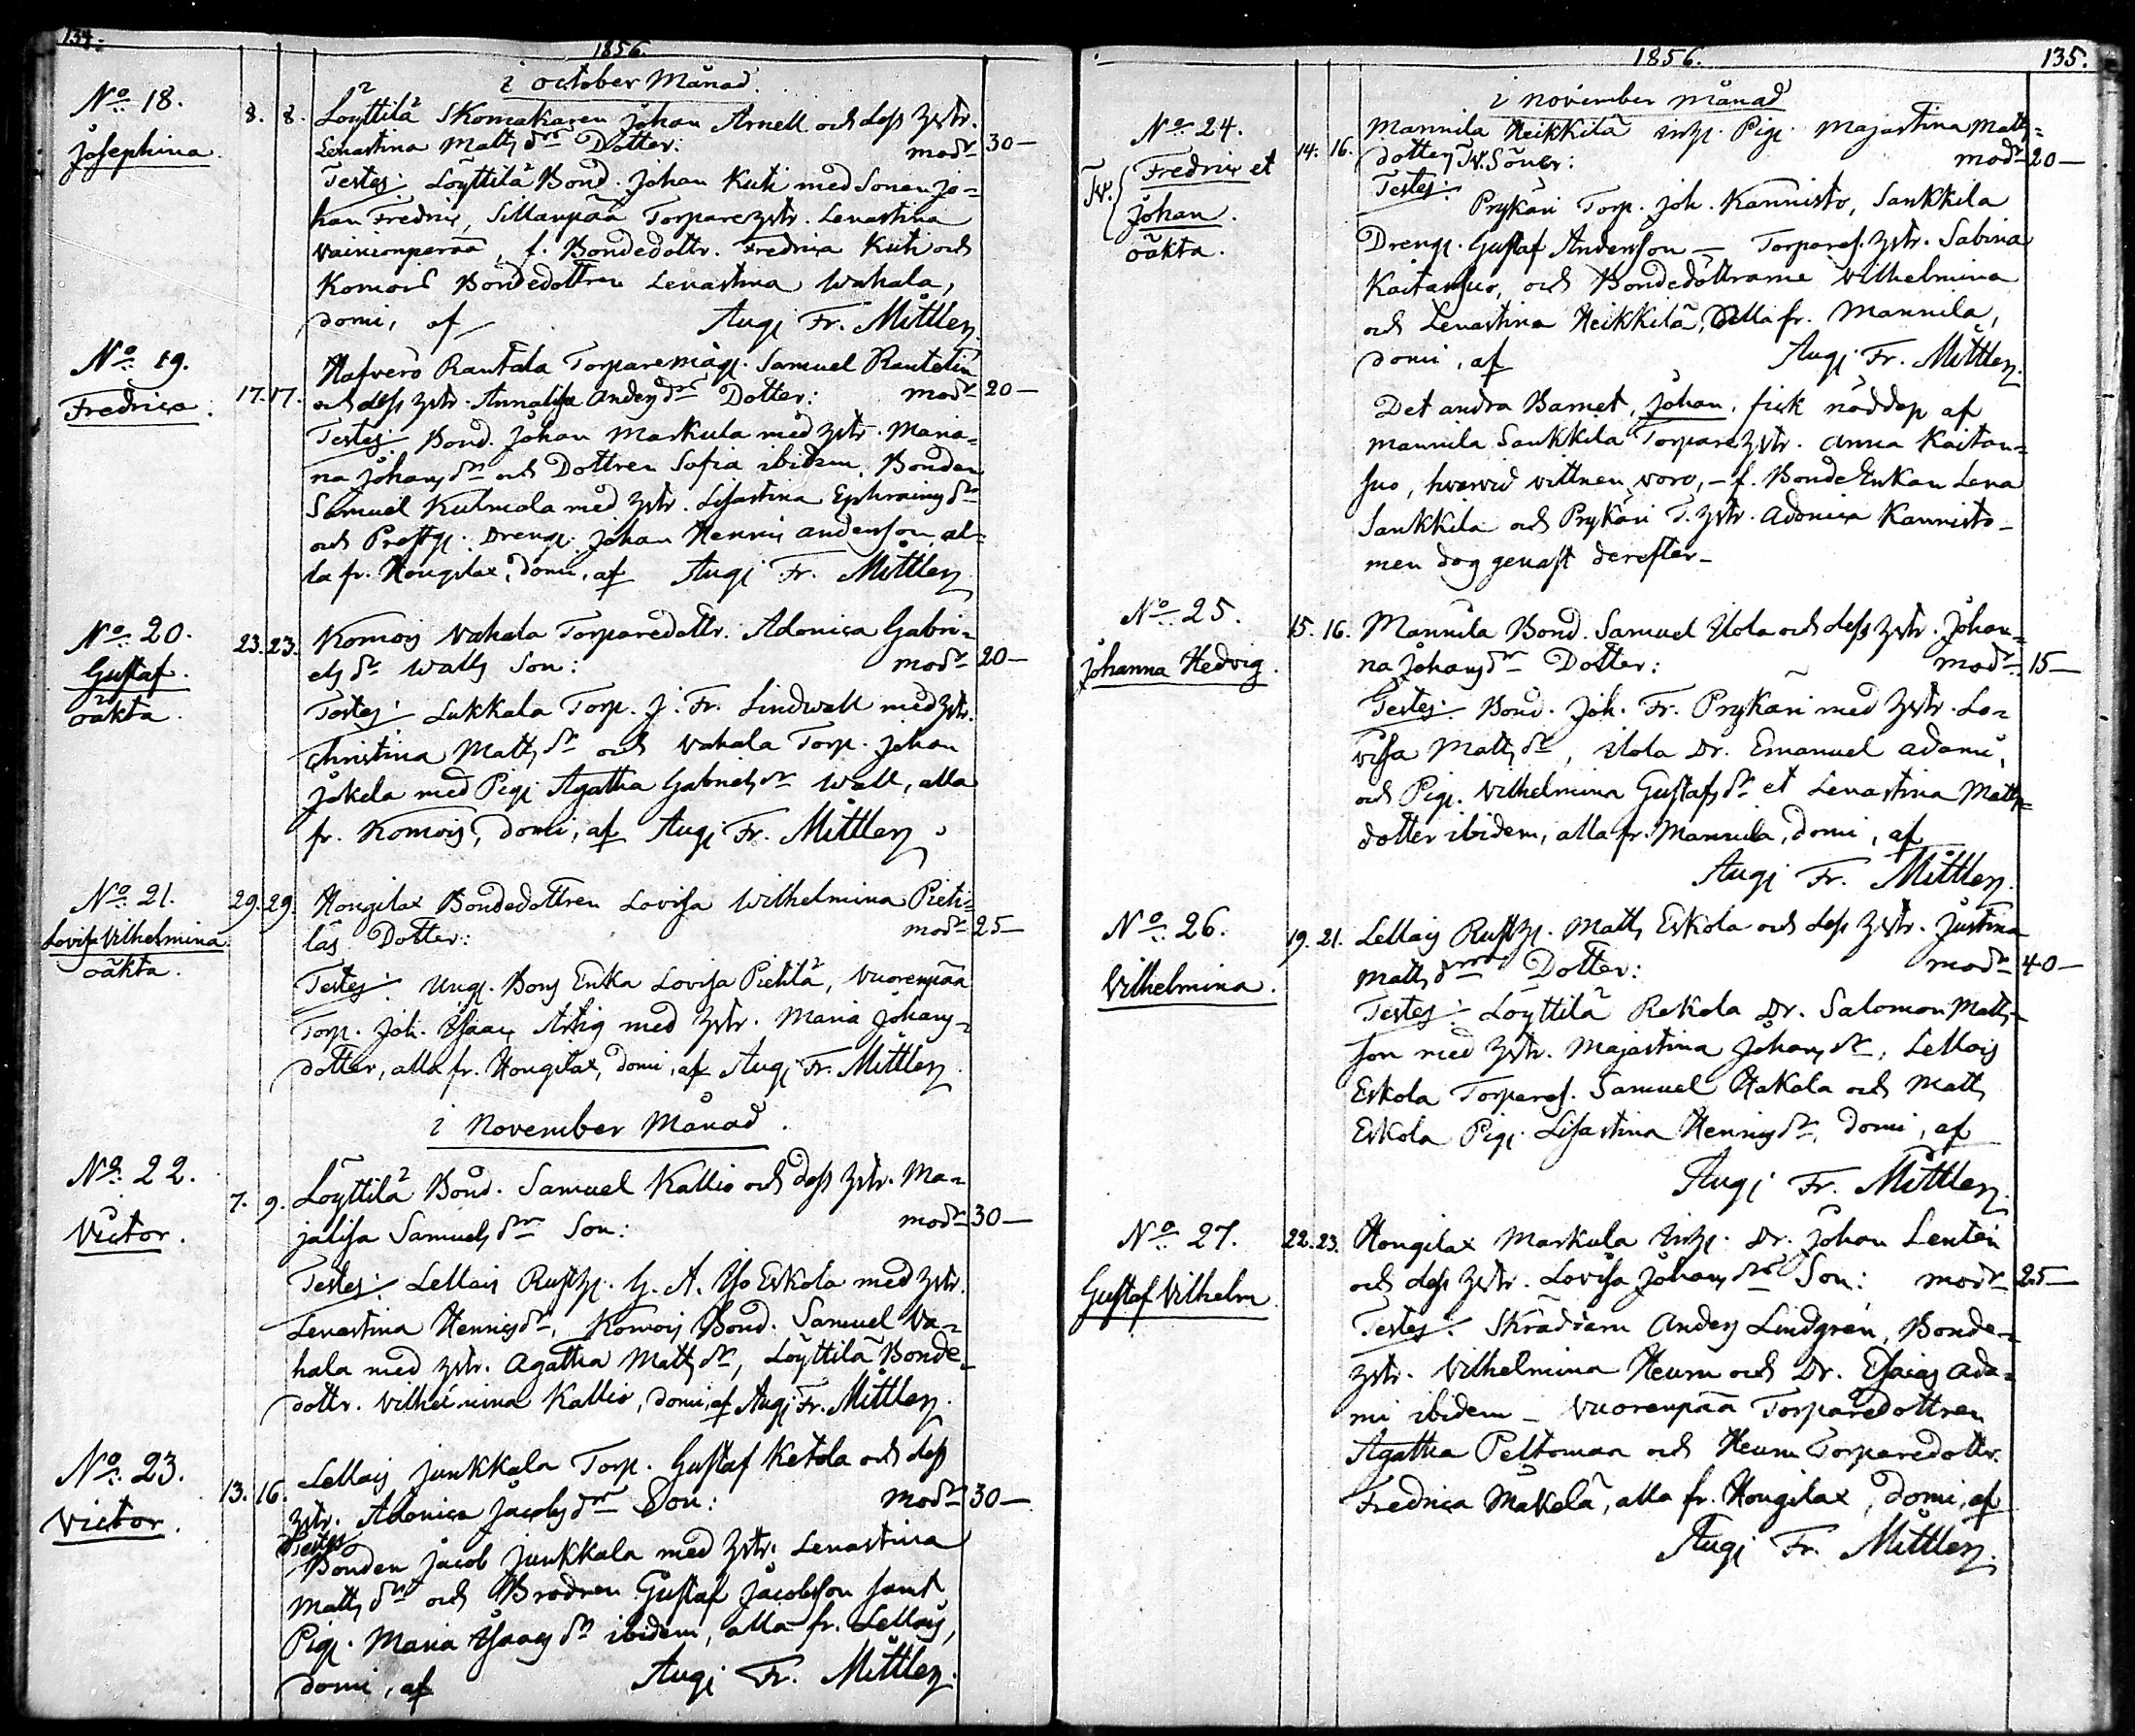 134.
1856.
i october Månad.
No 18.
Josephina.
8. 8. Löyttilä Skomakaren Johan Arnell och dess hstr.
Lenastina Matts dr Dotter: modr 30 —
Testes: Löyttilä Bond. Johan Kuti med Sonen Jo=
han Fredric, Sillanpää Torpare hstr. Lenastina
Vainionperää, f. Bondedottr. Fredrica Kuti och
Komois Bondedottren Lenastina Wahala,
domi, af Augi Fr. Mittler.
No 19.
Fredrica.
17. 17. Hafverö Rantala Torparemåg. Samuel Rantelin
och dess hstr. Annalisa Anders dr Dotter: modr 20 —
Testes: Bond. Johan Markula med hstr. Maria=
na Johans dr och Dottren Sofia ibidem, Bonden
Samuel Kulmala med hstr. Lisastina Ephraims dr
och Prestg. Dreng. Johan Henric Anderson, al=
la fr. Hongilax, domi, af Augi Fr. Mittler.
No 20.
Gustaf.
oäkta.
23. 23. Komois Vahala Torparedottr. Adonica Gabri=
els dr Walls Son: modr 20 —
Testes: Lukkala Torp. J. Fr. Lindwall med hstr.
Christina Matts dr och Vahala Torp. Johan
Jokela med Pig. Agatha Gabriels dr Wall, alla
fr. Komois, domi, af Augi Fr. Mittler.
No 21.
Lovisa Vilhelmina
oäkta.
29. 29. Hongilax Bondedottren Lovisa Wilhelmina Pieti=
läs Dotter: modr 25 —
Testes: Ung. Bons Enka Lovisa Pietilä, Vuorenpää
Torp. Joh. Isaac Artig med hstr. Maria Johans=
dotter, alla fr. Hongilax, domi, af Augi Fr. Mittler.
i November Månad.
No 22.
Victor.
7. 9. Löyttilä Bond. Samuel Kallio och dess hstr. Ma=
jalisa Samuels dr Son: modr 30 —
Testes: Lellais Rusth. G. A. Iso Eskola med hstr.
Lenastina Henrics dr, Komois Bond. Samuel Va=
hala med hstr. Agatha Matts dr, Löyttilä Bonde=
dottr. Vilhelmina Kallio, domi, af Augi Fr. Mittler.
No 23.
Victor.
13. 16. Lellais Junkkala Torp. Gustaf Ketola och dess
hstr. Adonica Jacobs dr Son: modr 30 —
Testes
Bonden Jacob Junkkala med hstr. Lenastina
Matts dr och Brodren Gustaf Jacobsson samt
Pig. Maria Isaacs dr ibidem, alla fr. Lellais,
domi, af Augi Fr. Mittler.
1856. 135.
i november månad
No 24.
Tv. { Fredric et
Johan.
oäkta.
14. 16. Mannila Heikkilä inh. Pig. Majastina Matts=
dotters Tv. Söner: modr 20 —
Testes: Prykäri Torp. Joh. Kannisto, Sankkila
Dreng. Gustaf Anderson — Torpares. hstr. Sabina
Kaitansuo, och Bondedöttrarne Vilhelmina
och Lenastina Heikkilä, alla fr. Mannila,
domi, af Augi Fr. Mittler.
Det andra Barnet, Johan, fick nöddop af
Mannila Sankkila Torpare hstr. Anna Kaitan=
suo, hvarvid vittnen voro, — f. Bonde Enkan Lena
Sankkila och Prykäri T. hstr. Adonica Kannisto —
men dog genast derefter —
No 25.
Johanna Hedvig.
15. 16. Mannila Bond. Samuel Ilola och dess hstr. Johan=
na Johans dr Dotter: modr 15 —
Testes: Bond. Joh. Fr. Prykäri med hstr. Lo=
visa Matts dr, Ilola Dr. Emanuel Adami,
och Pig. Vilhelmina Gustafs dr et Lenastina Matts=
dotter ibidem, alla fr. Mannila, domi, af
Augi Fr. Mittler.
No 26.
Vilhelmina.
19. 21. Lellais Rusth. Matts Eskola och dess hstr. Justina
Matts dr Dotter: modr 40 —
Testes: Löyttilä Rekola Dr. Salomon Matts=
son med hstr. Majastina Johans dr, Lellais
Eskola Torpares. Samuel Hakala och Matts
Eskola Pig. Lisastina Henrics dr, domi, af
Augi Fr. Mittler.
No 27.
Gustaf Vilhelm
22. 23. Hongilax Markula inh. Dr. Johan Lentén
och dess hstr. Lovisa Johans dr Son: modr 25 —
Testes: Skräddaren Anders Lindgrén, Bonde=
hstr. Vilhelmina Heurn och Dr. Esaias Ada=
mi ibidem — Vuorenpää Torparedottren
Agatha Peltomaa och Heurn Torparedottr.
Fredrica Mäkelä, alla fr. Hongilax, domi, af
Augi Fr. Mittler.